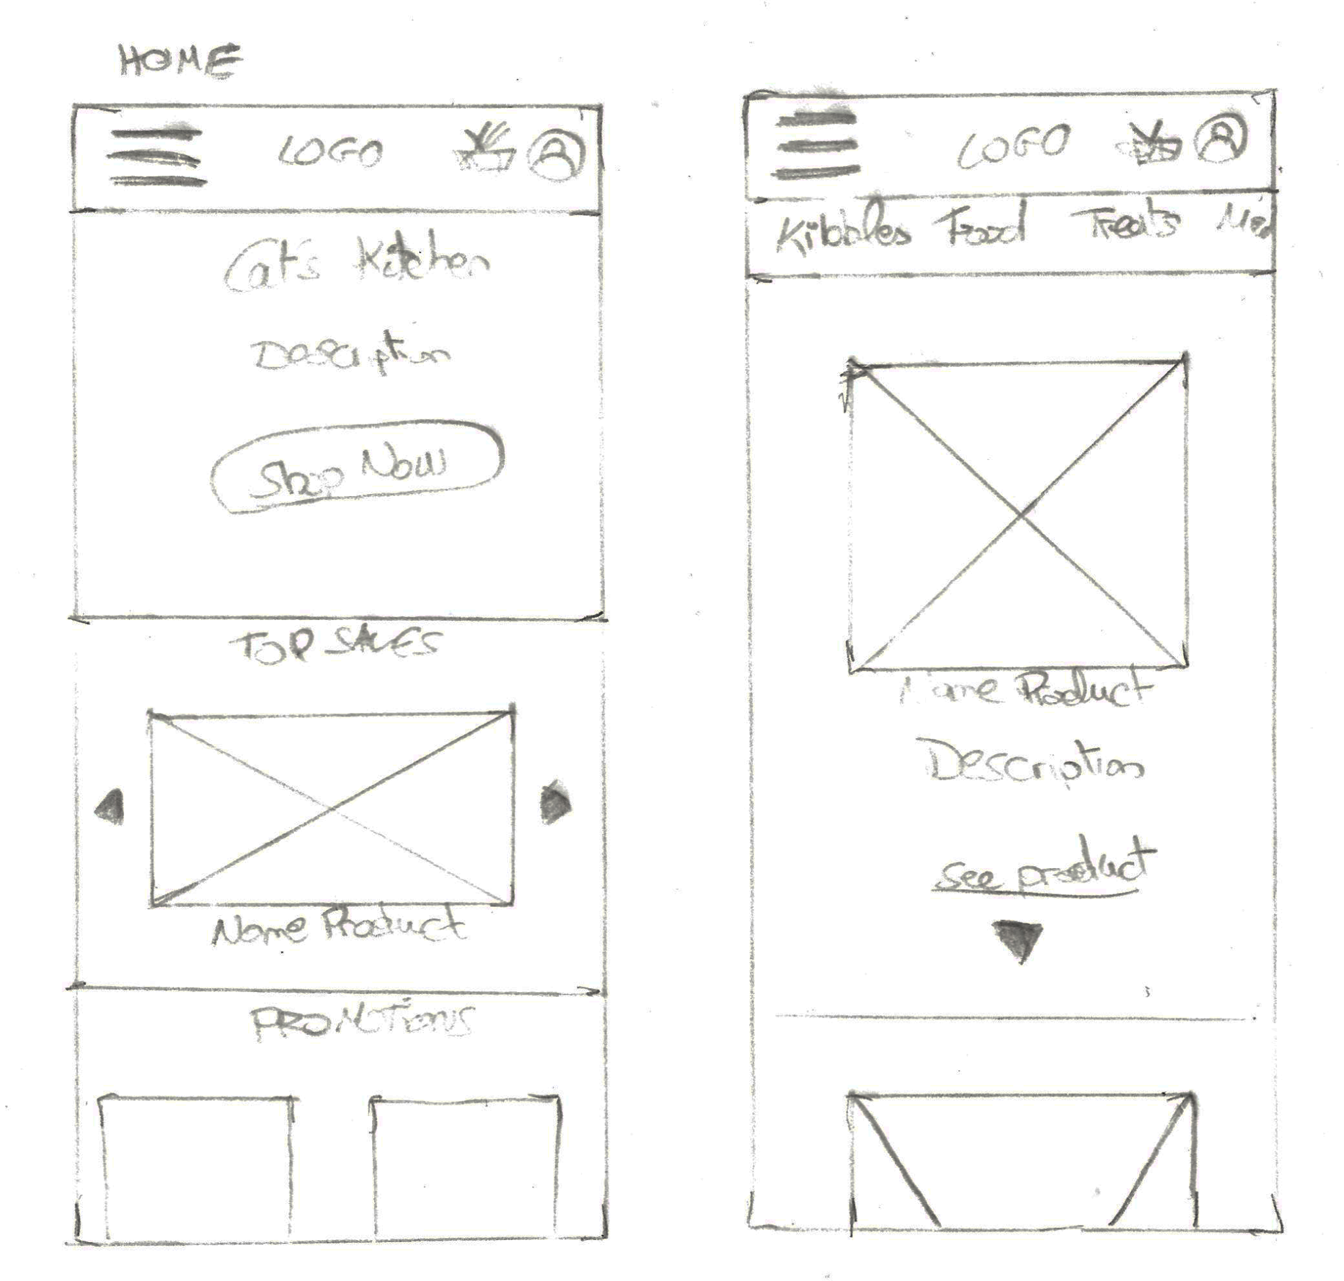 HOME
LOGO
Cat's Kitchen
Description
Shop Now
TOP SALES
Name Product
PROMOTIONS
LOGO
Kibbles Food Treats
Name Product
Description
see product